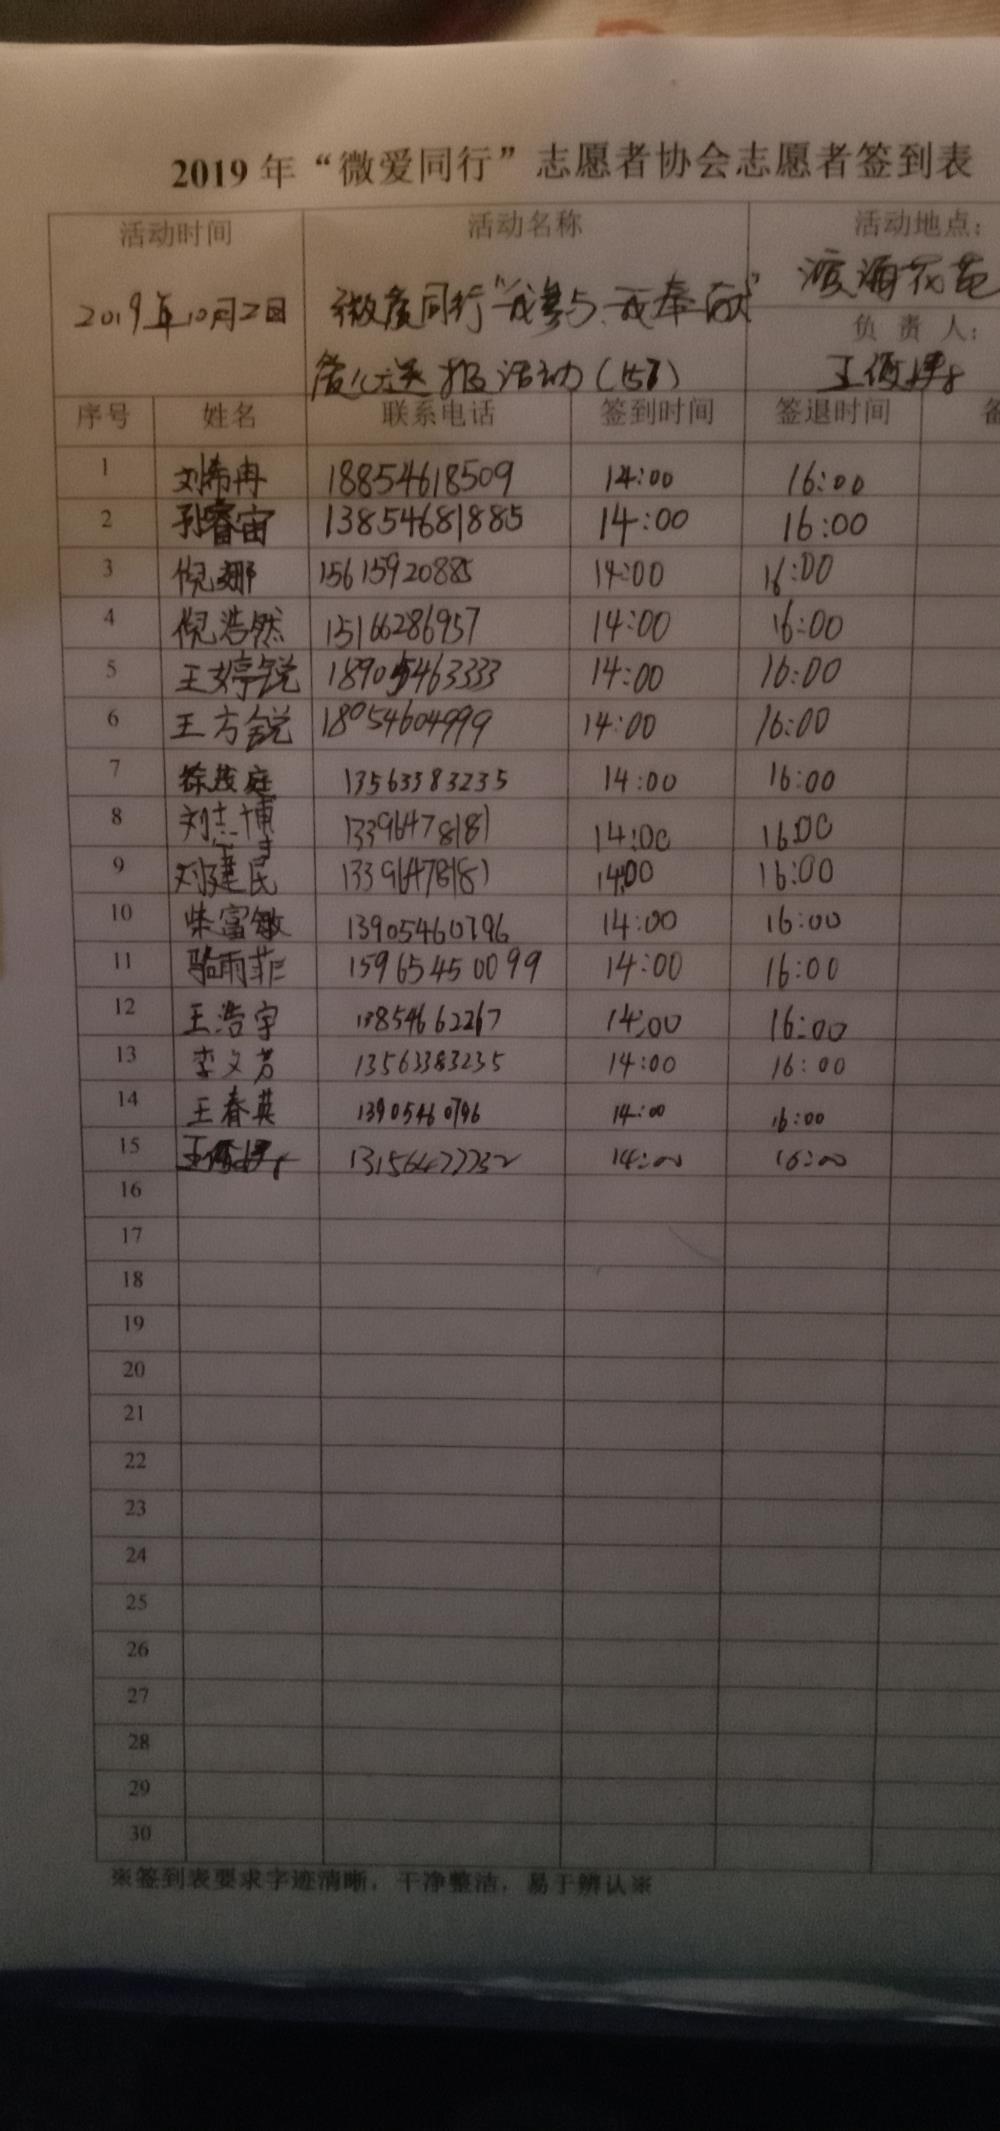 2019 年“微爱同行”志愿者协会志愿者签到表
活动时间 活动名称 活动地点：
2019年10月2日 微爱同行“我参与、我奉献” 渡海花苑
负 责 人：
爱心送报活动(157) 王俊博
序号 姓名 联系电话 签到时间 签退时间 备
1 刘希冉 18854618509 14:00 16:00
2 孔睿宙 13854681885 14:00 16:00
3 倪娜 15615920885 14:00 16:00
4 倪浩然 15166286957 14:00 16:00
5 王婷锐 18905463333 14:00 16:00
6 王方锐 18054604999 14:00 16:00
7 徐茂庭 13563383235 14:00 16:00
8 刘志博 13396478181 14:00 16:00
9 刘建民 13396478181 14:00 16:00
10 柴富敏 13905460796 14:00 16:00
11 骆雨菲 15965450099 14:00 16:00
12 王浩宇 13854662267 14:00 16:00
13 李文芳 13563383235 14:00 16:00
14 王春英 13905460796 14:00 16:00
15 13156477732 14:00 16:00
16
17
18
19
20
21
22
23
24
25
26
27
28
29
30
※签到表要求字迹清晰，干净整洁，易于辨认※